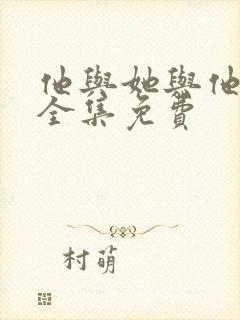 他與她與他
全集免費
村萌